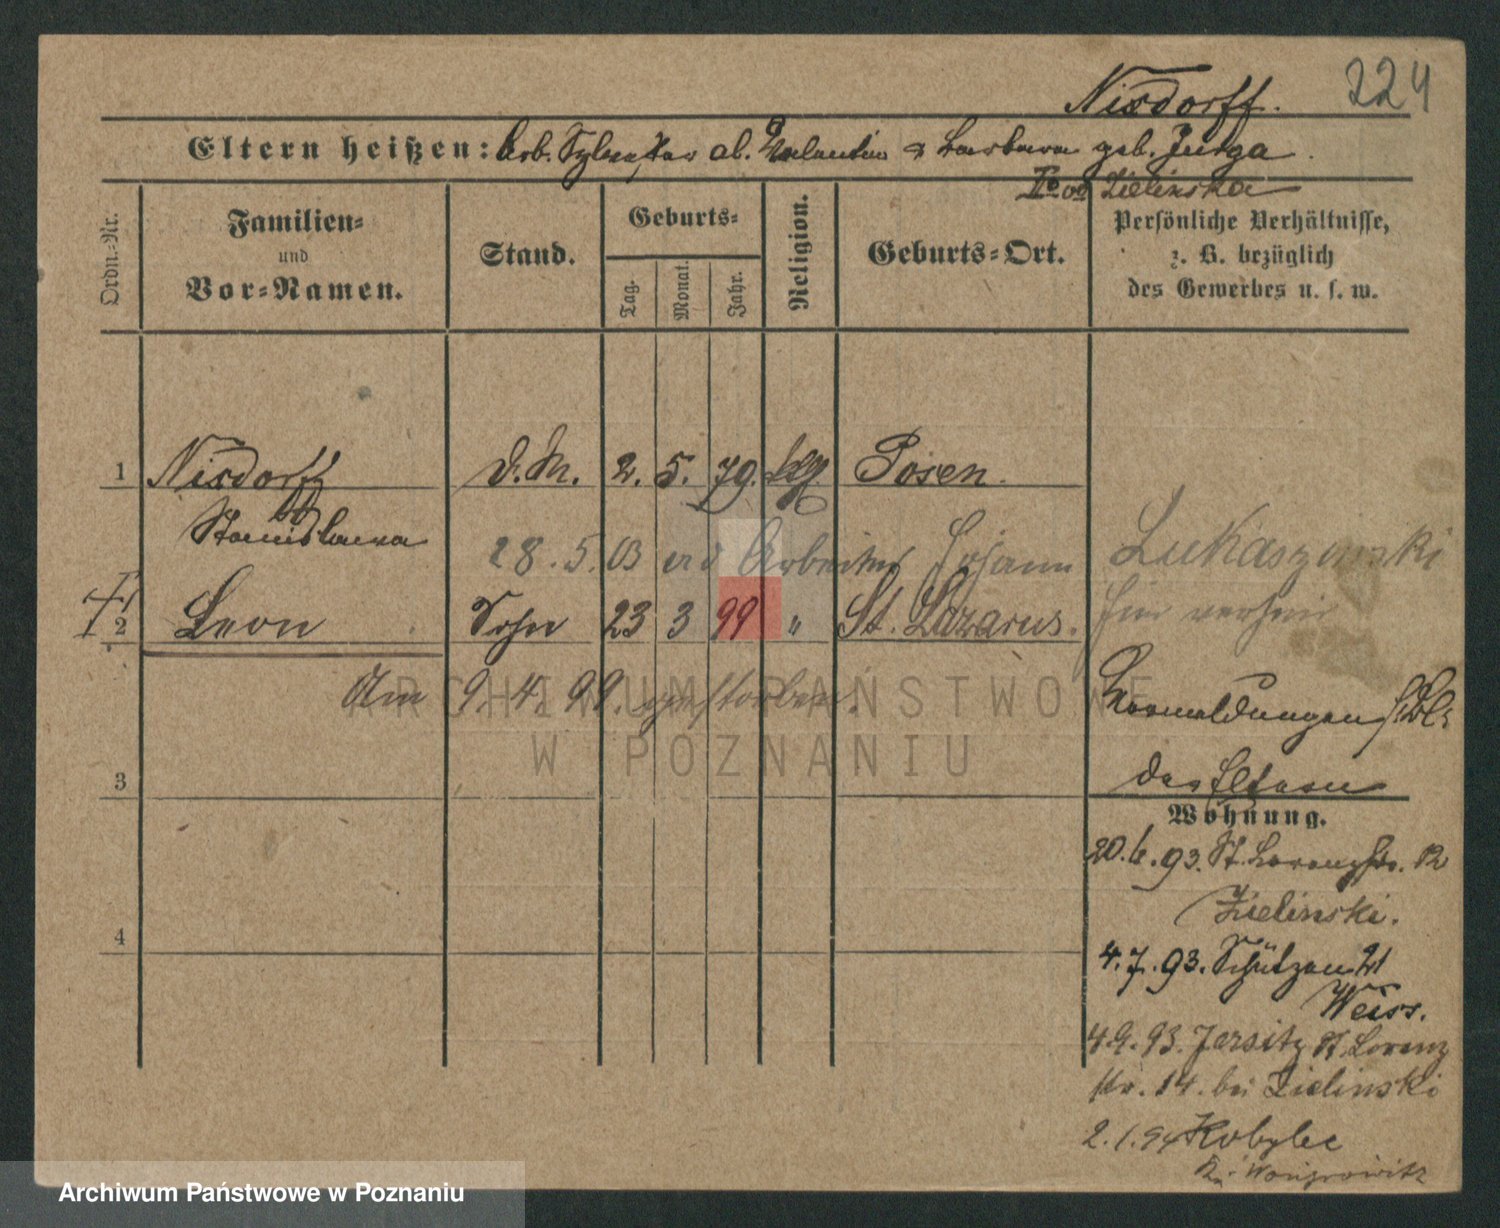 224
Nixdorff.
Eltern heißen: Arb. Sylvester al. Valentin & Barbara geb. Jurga.
IIo vo Zielinska
Ordn.-Nr.
Familien-
und
Vor-Namen.
Stand.
Geburts-
Tag.
Monat.
Jahr.
Religion.
Geburts-Ort.
Persönliche Verhältnisse,
z. B. bezüglich
des Gewerbes u. s. w.
1 Nixdorff d. M. 2. 5. 79. Posen.
Stanislawa
28. 5. 03 Arbeiter Johann Lukaszewski
2 Leon Sohn 23 3 99 " St. Lazarus.
hier verh
Am 9. 4. 99. gestorben.
Vormeldungen s. Bl.
der Eltern
3
Wohnung.
20. 6. 93. St. Lorenzstr.
Zielinski.
4
4. 7. 93. Schützen 21
Weiss.
4. 9. 93. Jersitz St. Lorenz
str. 14. bei Zielinski
2. 1. 94 Kobylec
Kr. Wongrowitz
ARCHIWUM PAŃSTWOWE
W POZNANIU
Archiwum Państwowe w Poznaniu